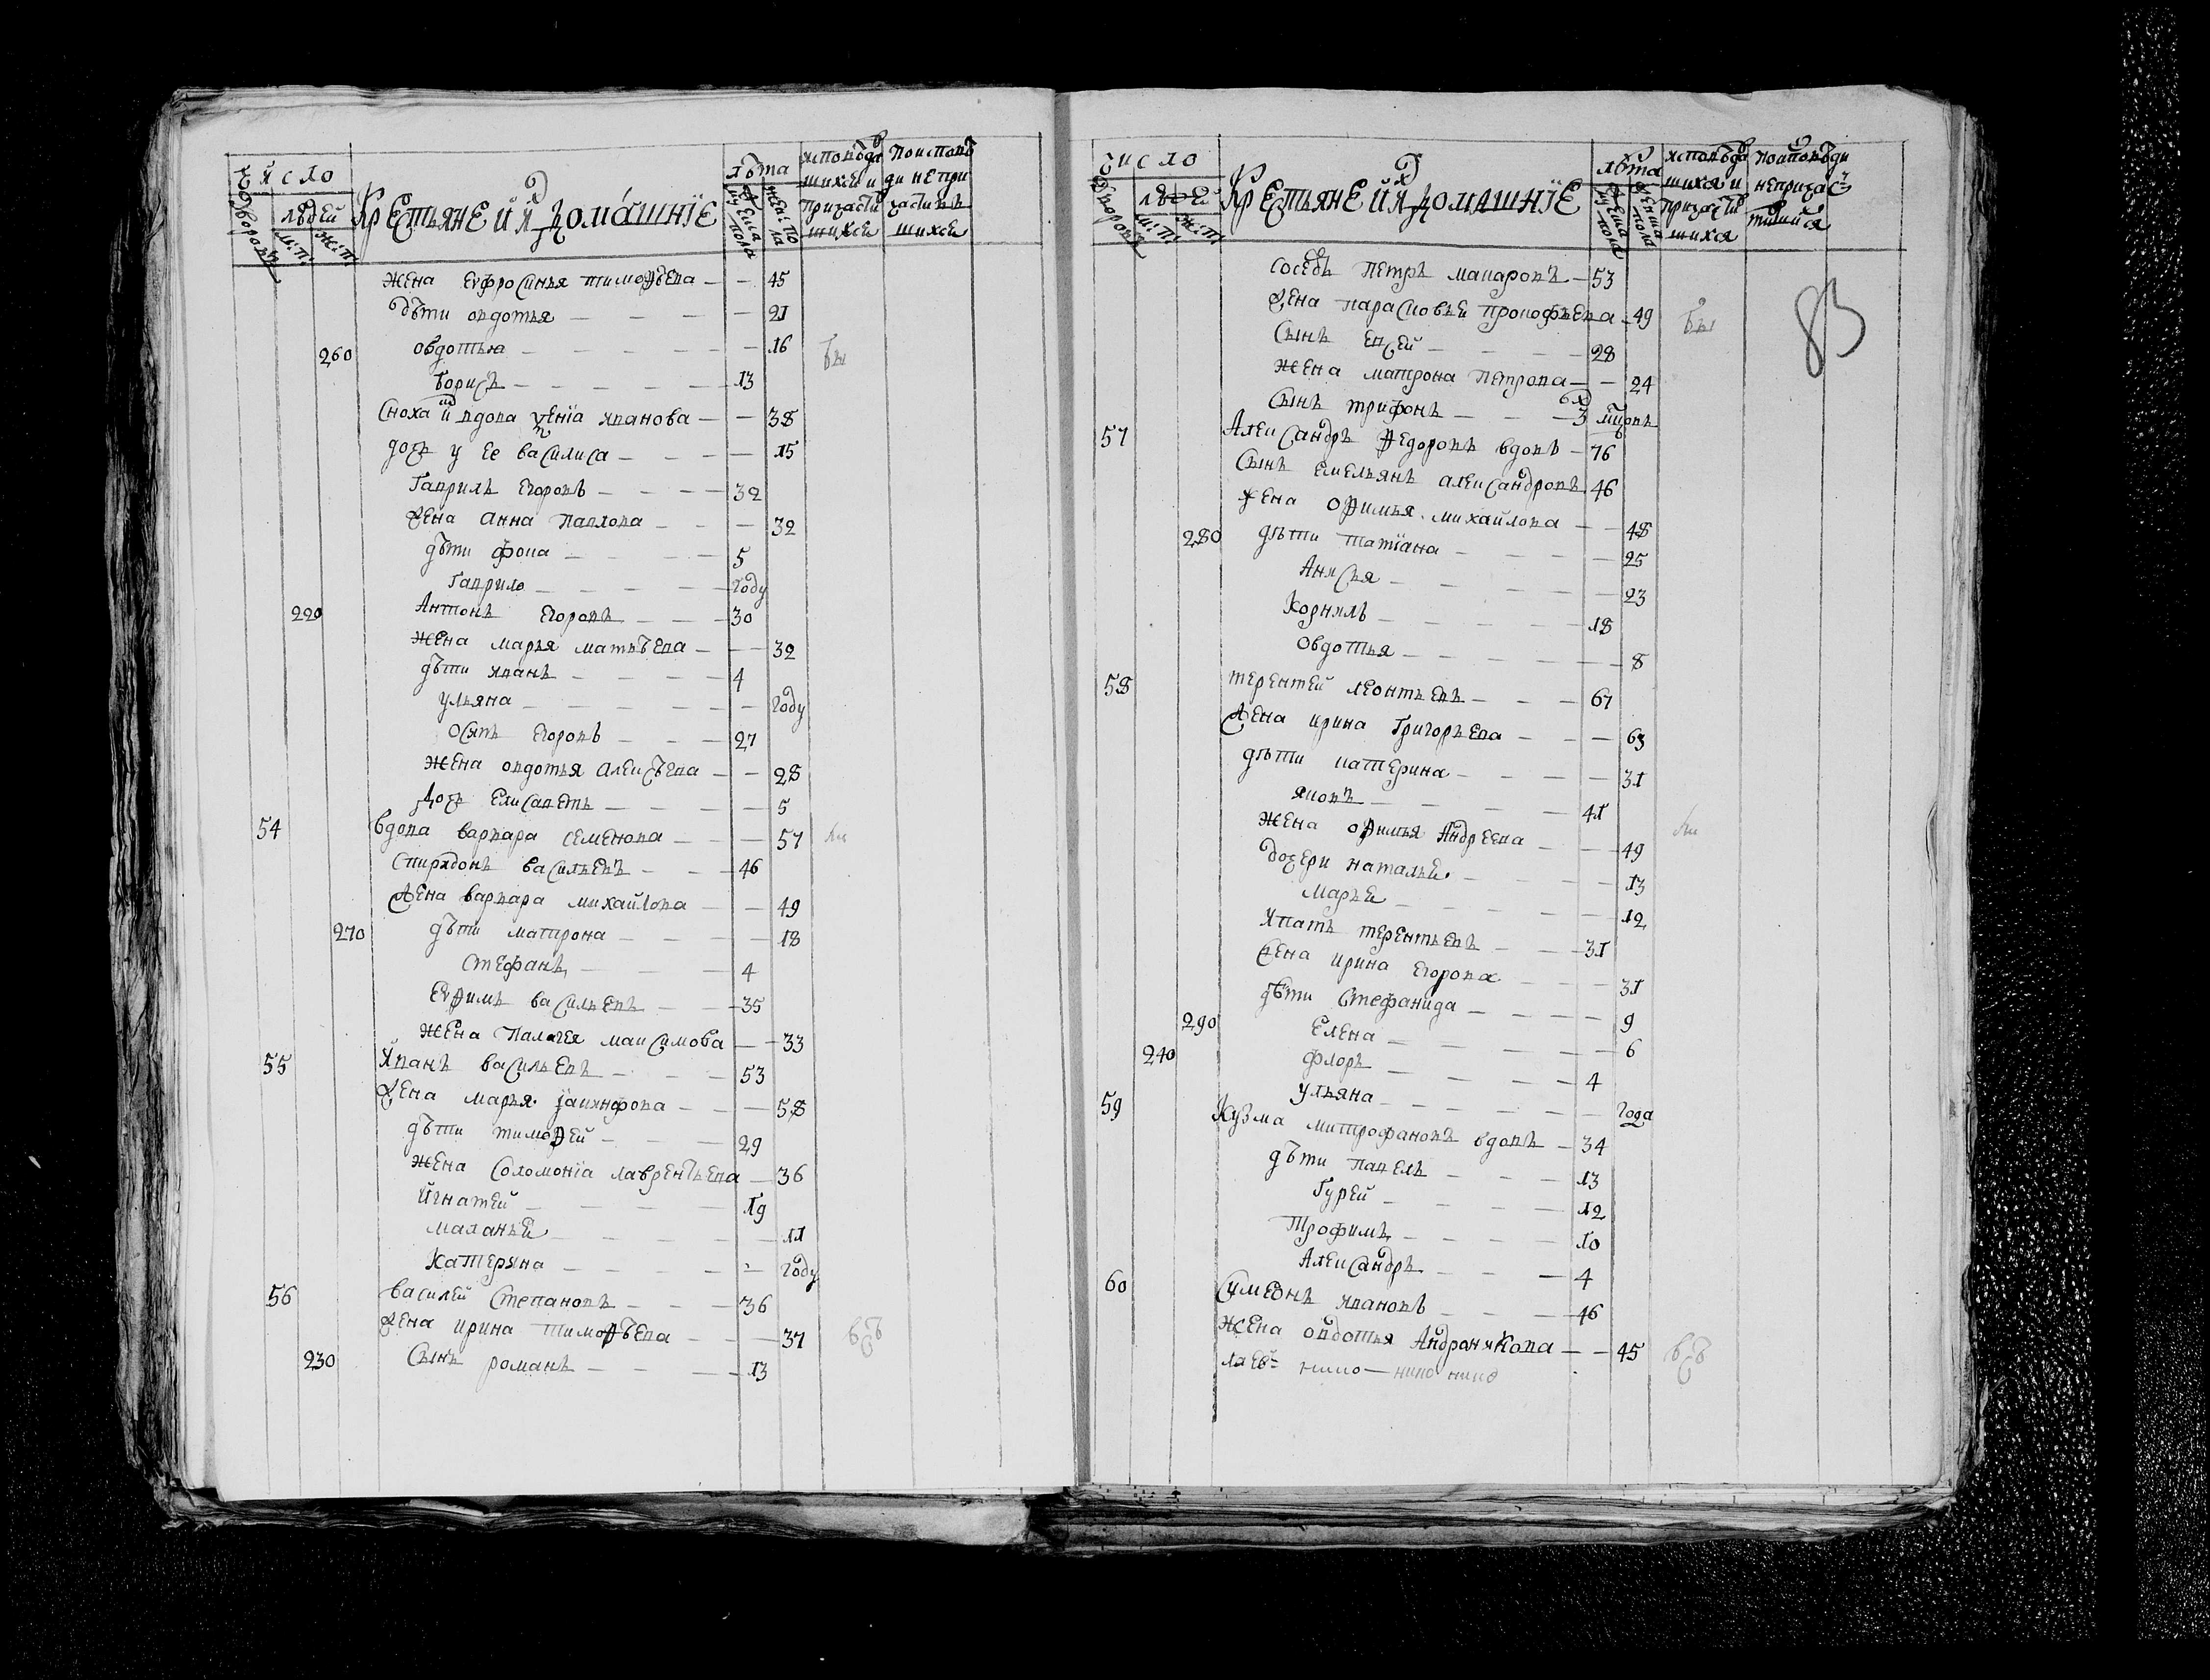 Число
Дворовъ
людей
м: п:
ж: п:
Крестьяне и ихъ домашнїе
лѣта
мужеска пола
женс: пола
исповѣдавшихся и причастившихся
по исповѣди не причастившихся
жена Евфросинья тимоѳѣева — — 45
дѣти овдотья — — — — 21
260 овдотья — — — — — 16
борисъ — — — — — 13
Сноха ихъ вдова ѯенїа иванова — — 38
дочь у ее василиса — — — — 15
Гаврилъ Егоровъ — — — 32
жена анна павлова — — — 32
дѣти фока — — — — 5
Гаврило — — — — — году
220 Антонъ Егоровъ — — — 30
жена марья матвѣева — — — 32
дѣти иванъ — — — — 4
ульяна — — — — — году
осипъ Егоровъ — — — 27
жена овдотья алексѣева — — 28
дочь Елисаветъ — — — — 5
54 вдова варвара семенова — — — 57
спиридонъ васильевъ — — — 46
жена варвара михайлова — — 49
270 дѣти матрона — — — — 18
стефанъ — — — 4
Еѵѳимъ васильевъ — — 35
жена Палагея максимова — — 33
55 иванъ васильевъ — — — 53
жена марья іакинфова — — — 58
дѣти тимоѳей — — — 29
жена соломонїа лаврентьева — 36
игнатей — — — — 19
маланья — — — — — 11
катерина — — — — — году
56 василей степановъ — — — 36
жена ирина тимоѳѣева — — — 37
230 сынъ романъ — — — 13
число
Дворовъ
людей
м: п:
ж: п:
Крестьяне и ихъ домашнїе
лѣта
мужеска пола
женска пола
исповѣдавшихся и причастившихся
по исповѣди не причастившихся
83
сосѣдъ петръ макаровъ — 53
жена парасковья прокофьева — 49
сынъ евсей — — — — 28
жена матрона петрова — — 24
сынъ трифонъ — — — 3
57 Александръ ѳедоровъ вдовъ — 76
сынъ емельянъ александровъ 46
жена оѳимья михайлова — — 48
280 дѣти татїана — — — — 25
Анисья — — — — 23
Корнилъ — — — — — 18
овдотья — — — — — — 8
58 терентей леонтьевъ — — — 67
жена ирина Григорьева — — — 63
дѣти катерина — — — — 31
яковъ — — — — 41
жена оѳимья Андреева — — — 49
дочери наталья — — — — 13
марья — — — — 12
ипатъ терентьевъ — — 31
жена ирина Егорова — — — 31
дѣти стефанида — — — — 9
290 Елена — — — — — 6
240 флоръ — — — — 4
ульяна — — — — — года
59 Кузма митрофановъ вдовъ — 34
дѣти павелъ — — — 13
Гурей — — — — 12
трофимъ — — — — 10
Александръ — — — 4
60 симеонъ ивановъ — — — 46
жена овдотья Андроникова — — 45